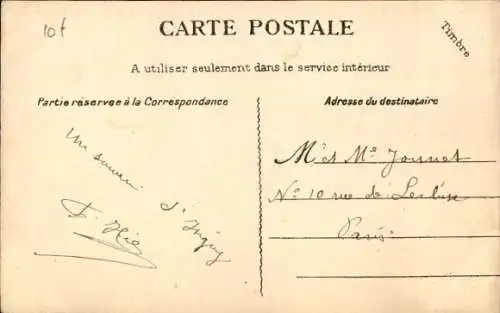 10f
CARTE POSTALE
Timbre
A utiliser seulement dans le service intérieur
Partie réservée à la Correspondance
Adresse du destinataire
Un souvenir
d'
F.
M et Me Journot
No 10 rue de Lecluse
Paris